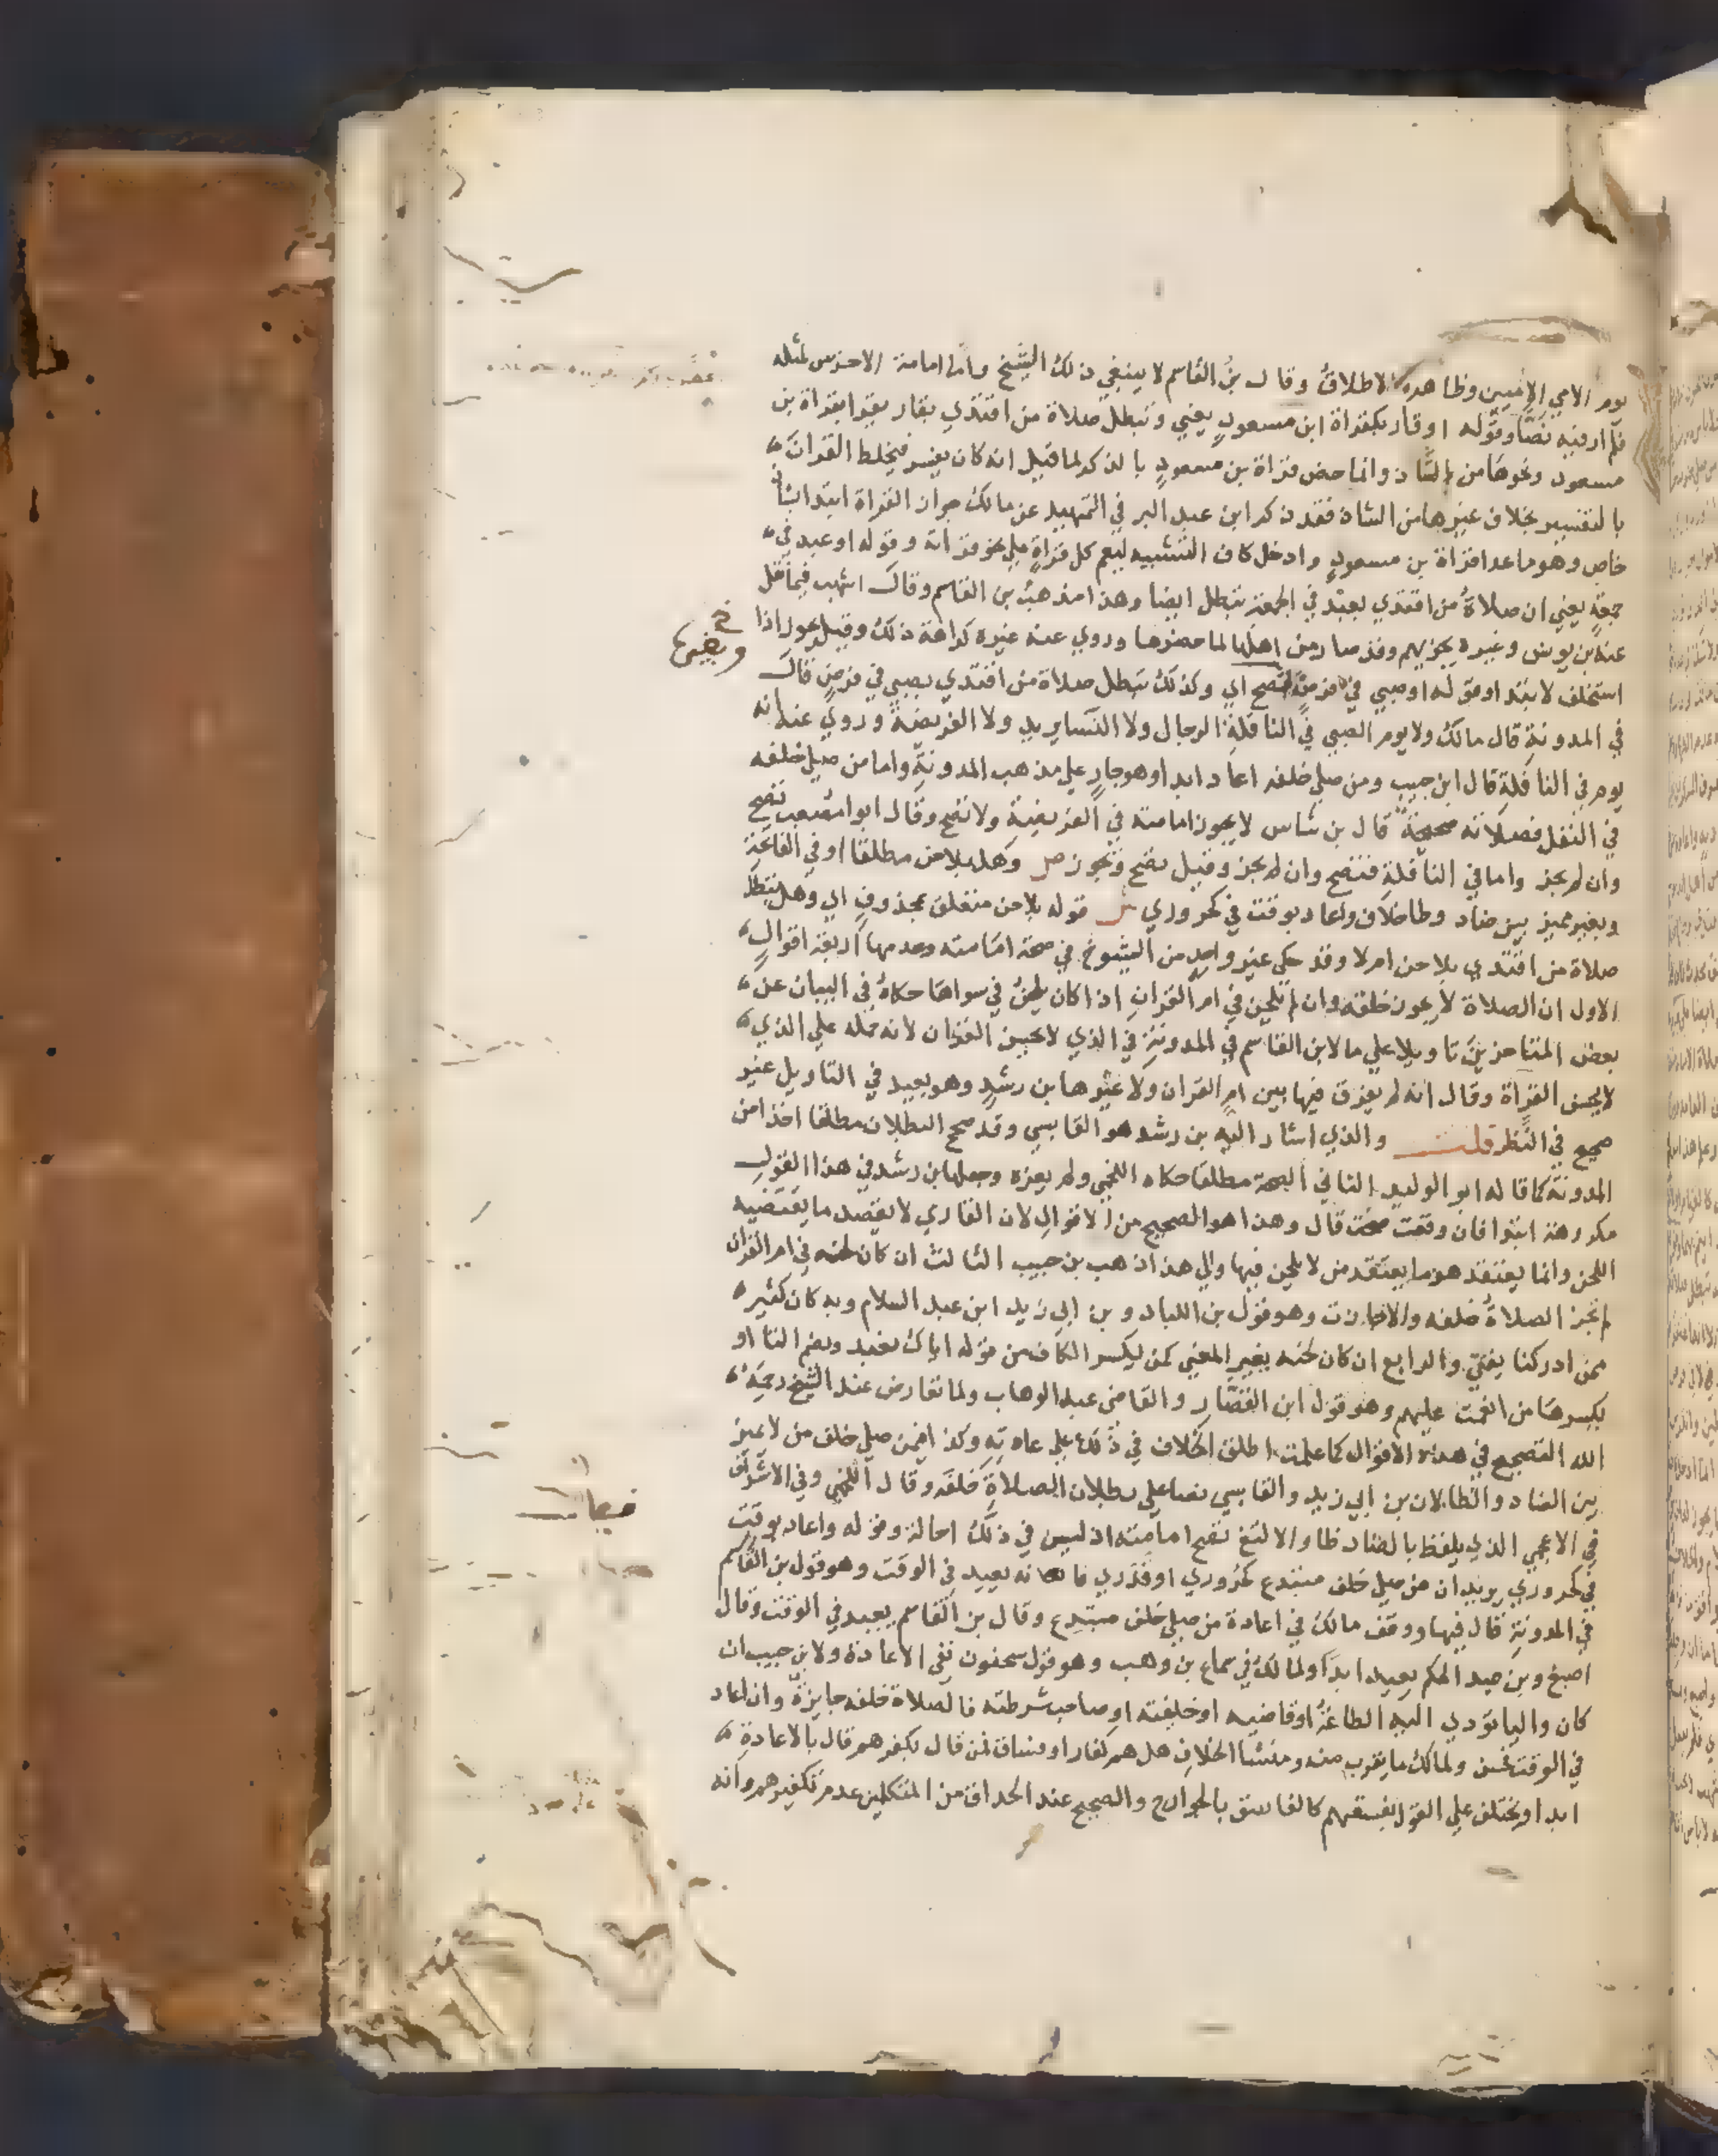 يوم الامي الاميين وظاهره الاطلاق وقال بن القاسم لا ينبغي ذلك الشيخ واما امامة الاخرس لمثله
فلم ار فيه نصا وقوله او قار بكقراة ابن مسعود يعني وتبطل صلاة من اقتدي بقار يقرا بقراة بن
مسعود ونحوها من الشاذ وانما خص قراة بن مسعود بالذكر لما قيل انه كان يفسر فيخلط القران
بالتفسير بخلاف غيرها من الشاذ فقد ذكر ابن عبد البر في التمهيد عن مالك جواز القراة ابتدا بشاذ
خاص وهو ما عدا قراة بن مسعود وادخل كاف التشبيه ليعم كل قراة علي نحو قراته وقوله او عبد في
جمعة يعني ان صلاة من اقتدي بعبد في الجمعة تبطل ايضا وهذا مذهب بن القاسم وقال اشهب فيما نقل
عنه بن يونس وغيره يجزيهم وقد صار من اهلها لما حضرها وروي عنه غيره كراهة ذلك وقيل يجوز اذا
استخلف لا ابتدا وقوله او صبي في فرض اي وكذلك تبطل صلاة من اقتدي بصبي في فرض قال
في المدونة قال مالك ولا يوم الصبي في النافلة الرجال ولا النسا يريد ولا الفريضة وروي عنه انه
يوم في النافلة قال ابن حبيب ومن صلي خلفه اعاد ابدا وهو جار علي مذهب المدونة واما من صلي خلفه
في النفل فصلاته صحيحة قال بن شاس لا يجوز امامته في الفريضة ولا تصح وقال ابو امصعب تصح
وان لم يجز واما في النافلة فتصح وان لم يجز وقيل تصح وتجوز ص وهل بلاحن مطلقا او في الفاتحة
وبغير مميز بين ضاد وظا خلاف واعاد بوقت في كحروري ش قوله بلاحن متعلق بمحذوف اي وهل تبطل
صلاة من اقتدي بلاحن ام لا وقد حكي غير واحد من الشيوخ في صحة امامته وعدمها اربعة اقوال
الاول ان الصلاة لا يجوز خلفه وان لم يلحن في ام القران اذا كان يلحن في سواها حكاه في البيان عن
بعض المتاخرين تاويلا علي ما لابن القاسم في المدونة في الذي لا يحسن القران لانه حمله علي الذي
لا يحسن القراة وقال انه لم يفرق فيها بين ام القران ولا غيرها بن رشد وهو بعيد في التاويل غير
صحيح في النظر قلت والذي اشار اليه بن رشد هو القابسي وقد صحح البطلان مطلقا اخذا من
المدونة كما قاله ابو الوليد الثاني الصحة مطلقا حكاه اللخمي ولم يعزه وجعلها بن رشد في هذا القول
مكروهة ابتدا فان وقعت صحت قال وهذا هو الصحيح من الاقوال لان القاري لا يقصد ما يقتضيه
اللحن وانما يعتقد هو ما يعتقد من لا يلحن فيها والي هذا ذهب بن حبيب الثالث ان كان لحنه في ام القران
لم تجز الصلاة خلفه والا جازت وهو قول بن اللباد وبن ابي زيد ابن عبد السلام وبه كان كثير
ممن ادركنا يفتي والرابع ان كان لحنه يغير المعني كمن يكسر الكاف من قوله اياك نعبد ويضم التا او
يكسرها من انعمت عليهم وهو قول ابن القصار والقاضي عبد الوهاب ولما تعارض عند الشيخ رحمه
الله التصحيح في هذه الاقوال كما علمت اطلق الخلاف في ذلك علي عادته وكذا فيمن صلي خلف من لا يميز
بين الضاد والظا لان بن ابي زيد والقابسي نصا علي بطلان الصلاة خلفه وقال اللخمي وفي الاشراف
في الاعجمي الذي يلفظ بالضاد ظا والالثغ تصح امامته اذ ليس في ذلك احالة وقوله واعاد بوقت
في كحروري يريد ان من صلي خلف مبتدع كحروري او قدري فانه يعيد في الوقت وهو قول بن القاسم
في المدونة قال فيها ووقف مالك في اعادة من صلي خلف مبتدع وقال بن القاسم يعيد في الوقت وقال
اصبغ وبن عبد الحكم يعيد ابدا ولمالك في سماع بن وهب وهو قول سحنون نفي الاعادة ولابن حبيب ان
كان واليا تودي اليه الطاعة او قاضيه او خليفته او صاحب شرطته فالصلاة خلفه جايزة وان اعاد
في الوقت فحسن ولمالك ما يقرب منه ومنشا الخلاف هل هم كفار او فساق فمن قال بكفرهم قال بالاعادة
ابدا ويختلف علي القول بفسقهم كالفاسق بالجوارح والصحيح عند الحذاق من المتكلمين عدم تكفيرهم وانه